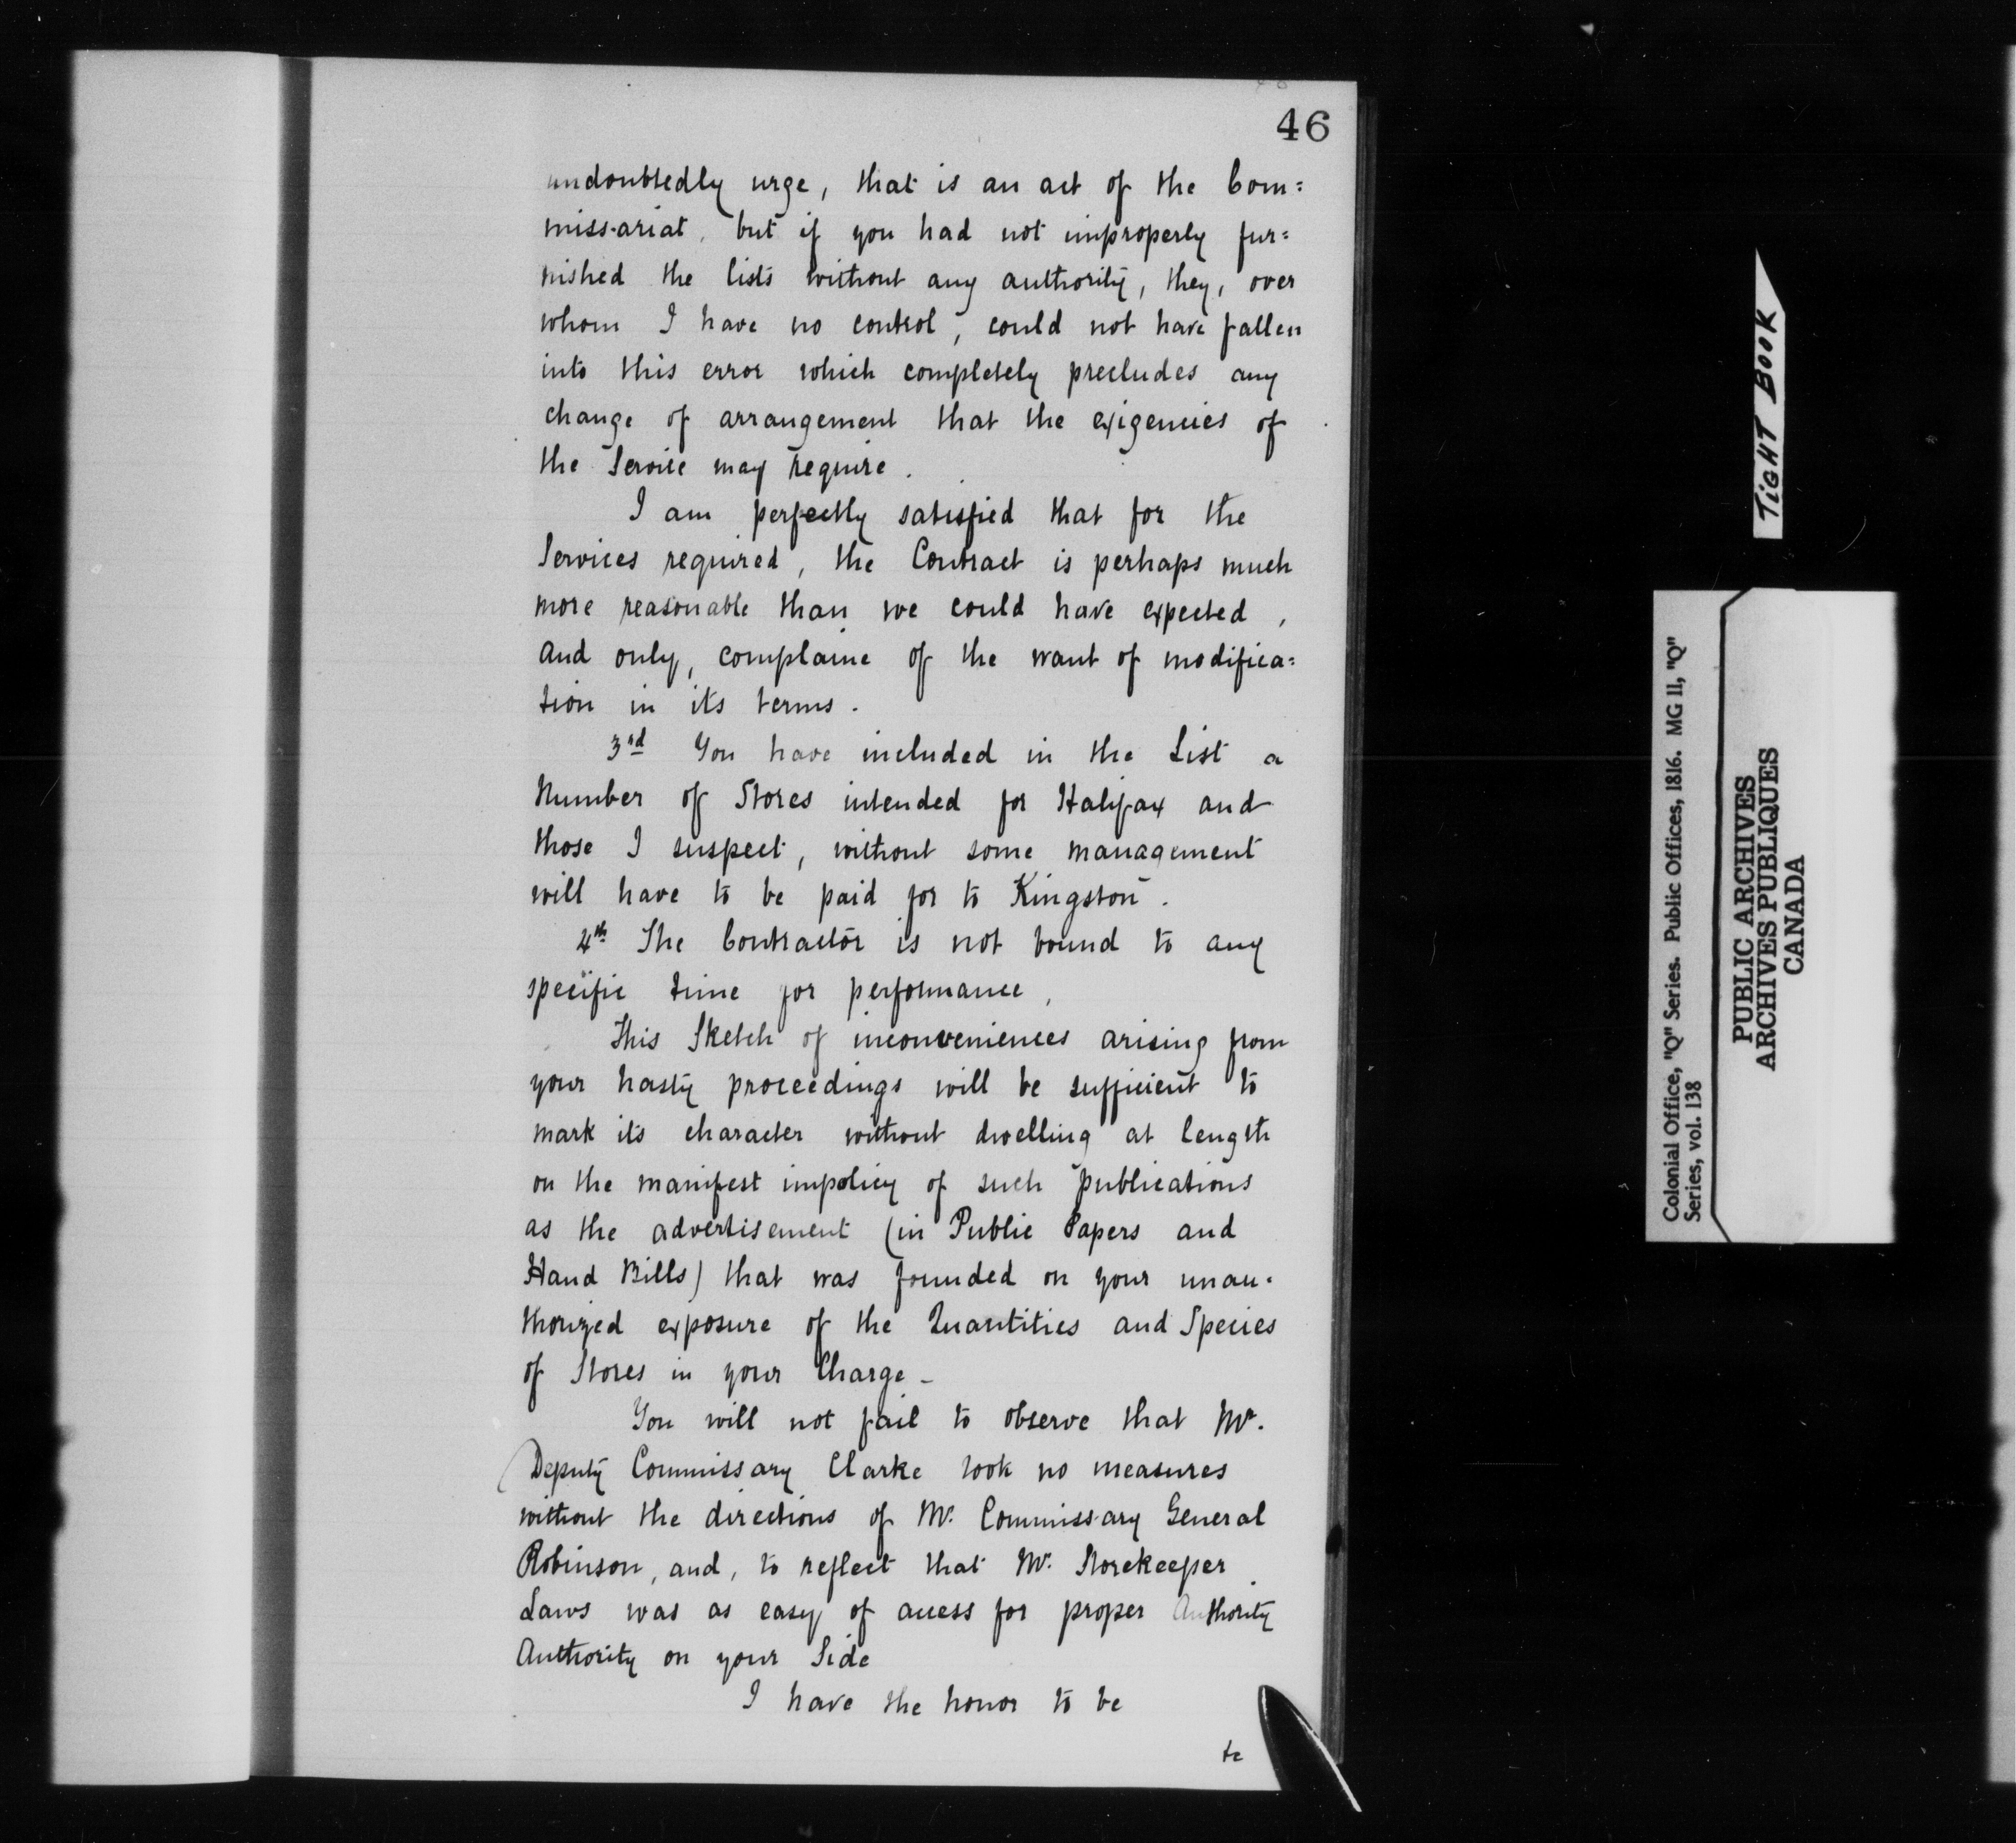 46
undoubtedly urge, that is an act of the Com=
missariat, but if you had not improperly fur=
nished the lists without any authority, they, over
whom I have no control, could not have fallen
into this error which completely precludes any
change of arrangement that the exigencies of
the Service may require.
I am perfectly satisfied that for the
Services required, the Contract is perhaps much
more reasonable than we could have expected,
and only, complaine of the want of modifica=
tion in its terms.
3rd You have included in the List a
Number of Stores intended for Halifax and
those I suspect, without some management
will have to be paid for to Kingston.
4th The Contractor is not bound to any
specific time for performance,
This Sketch of inconveniences arising from
your hasty proceedings will be sufficient to
mark its character without dwelling at length
on the manifest impolicy of such publications
as the advertisement (in Public Papers and
Hand Bills) that was founded on your unau-
thorized exposure of the Quantities and Species
of Stores in your Charge -
You will not fail to observe that Mr.
Deputy Commissary Clarke took no measures
without the directions of Mr. Commissary General
Robinson, and, to reflect that Mr. Storekeeper
Laws was as easy of access for proper Authority
Authority on your Side
I have the honor to be
&c
TIGHT BOOK
Colonial Office, "Q" Series. Public Offices, 1816. MG 11, "Q"
Series, vol. 138
PUBLIC ARCHIVES
ARCHIVES PUBLIQUES
CANADA